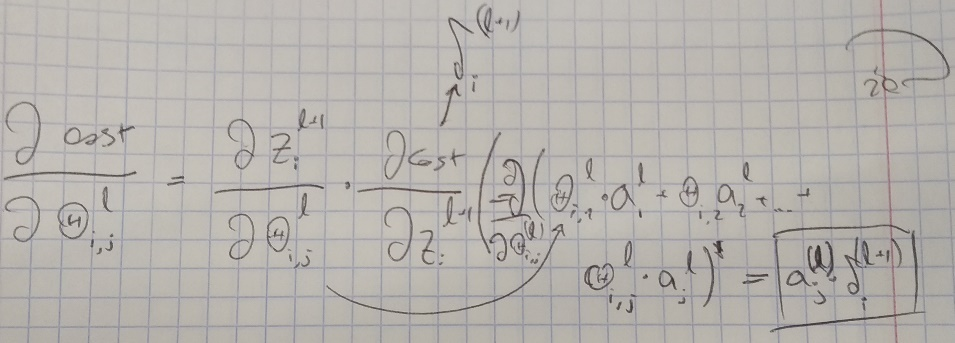 δ_i^(l+1)
20
∂ cost / ∂Θ_{i,j}^l = ∂z_i^{l+1} / ∂Θ_{i,j}^l · ∂cost / ∂z_i^{l+1} ( ∂ / ∂Θ_{i,j}^{(l)} ( Θ_{i,1}^l · a_1^l + Θ_{i,2} a_2^l + ... +
Θ_{i,j}^l · a_j^l ) = a_j^{(l)} · δ_i^{(l+1)}